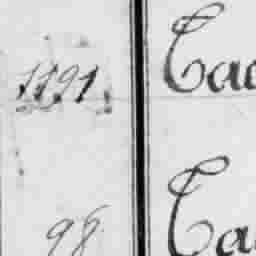 1891 Cac
98 Ca